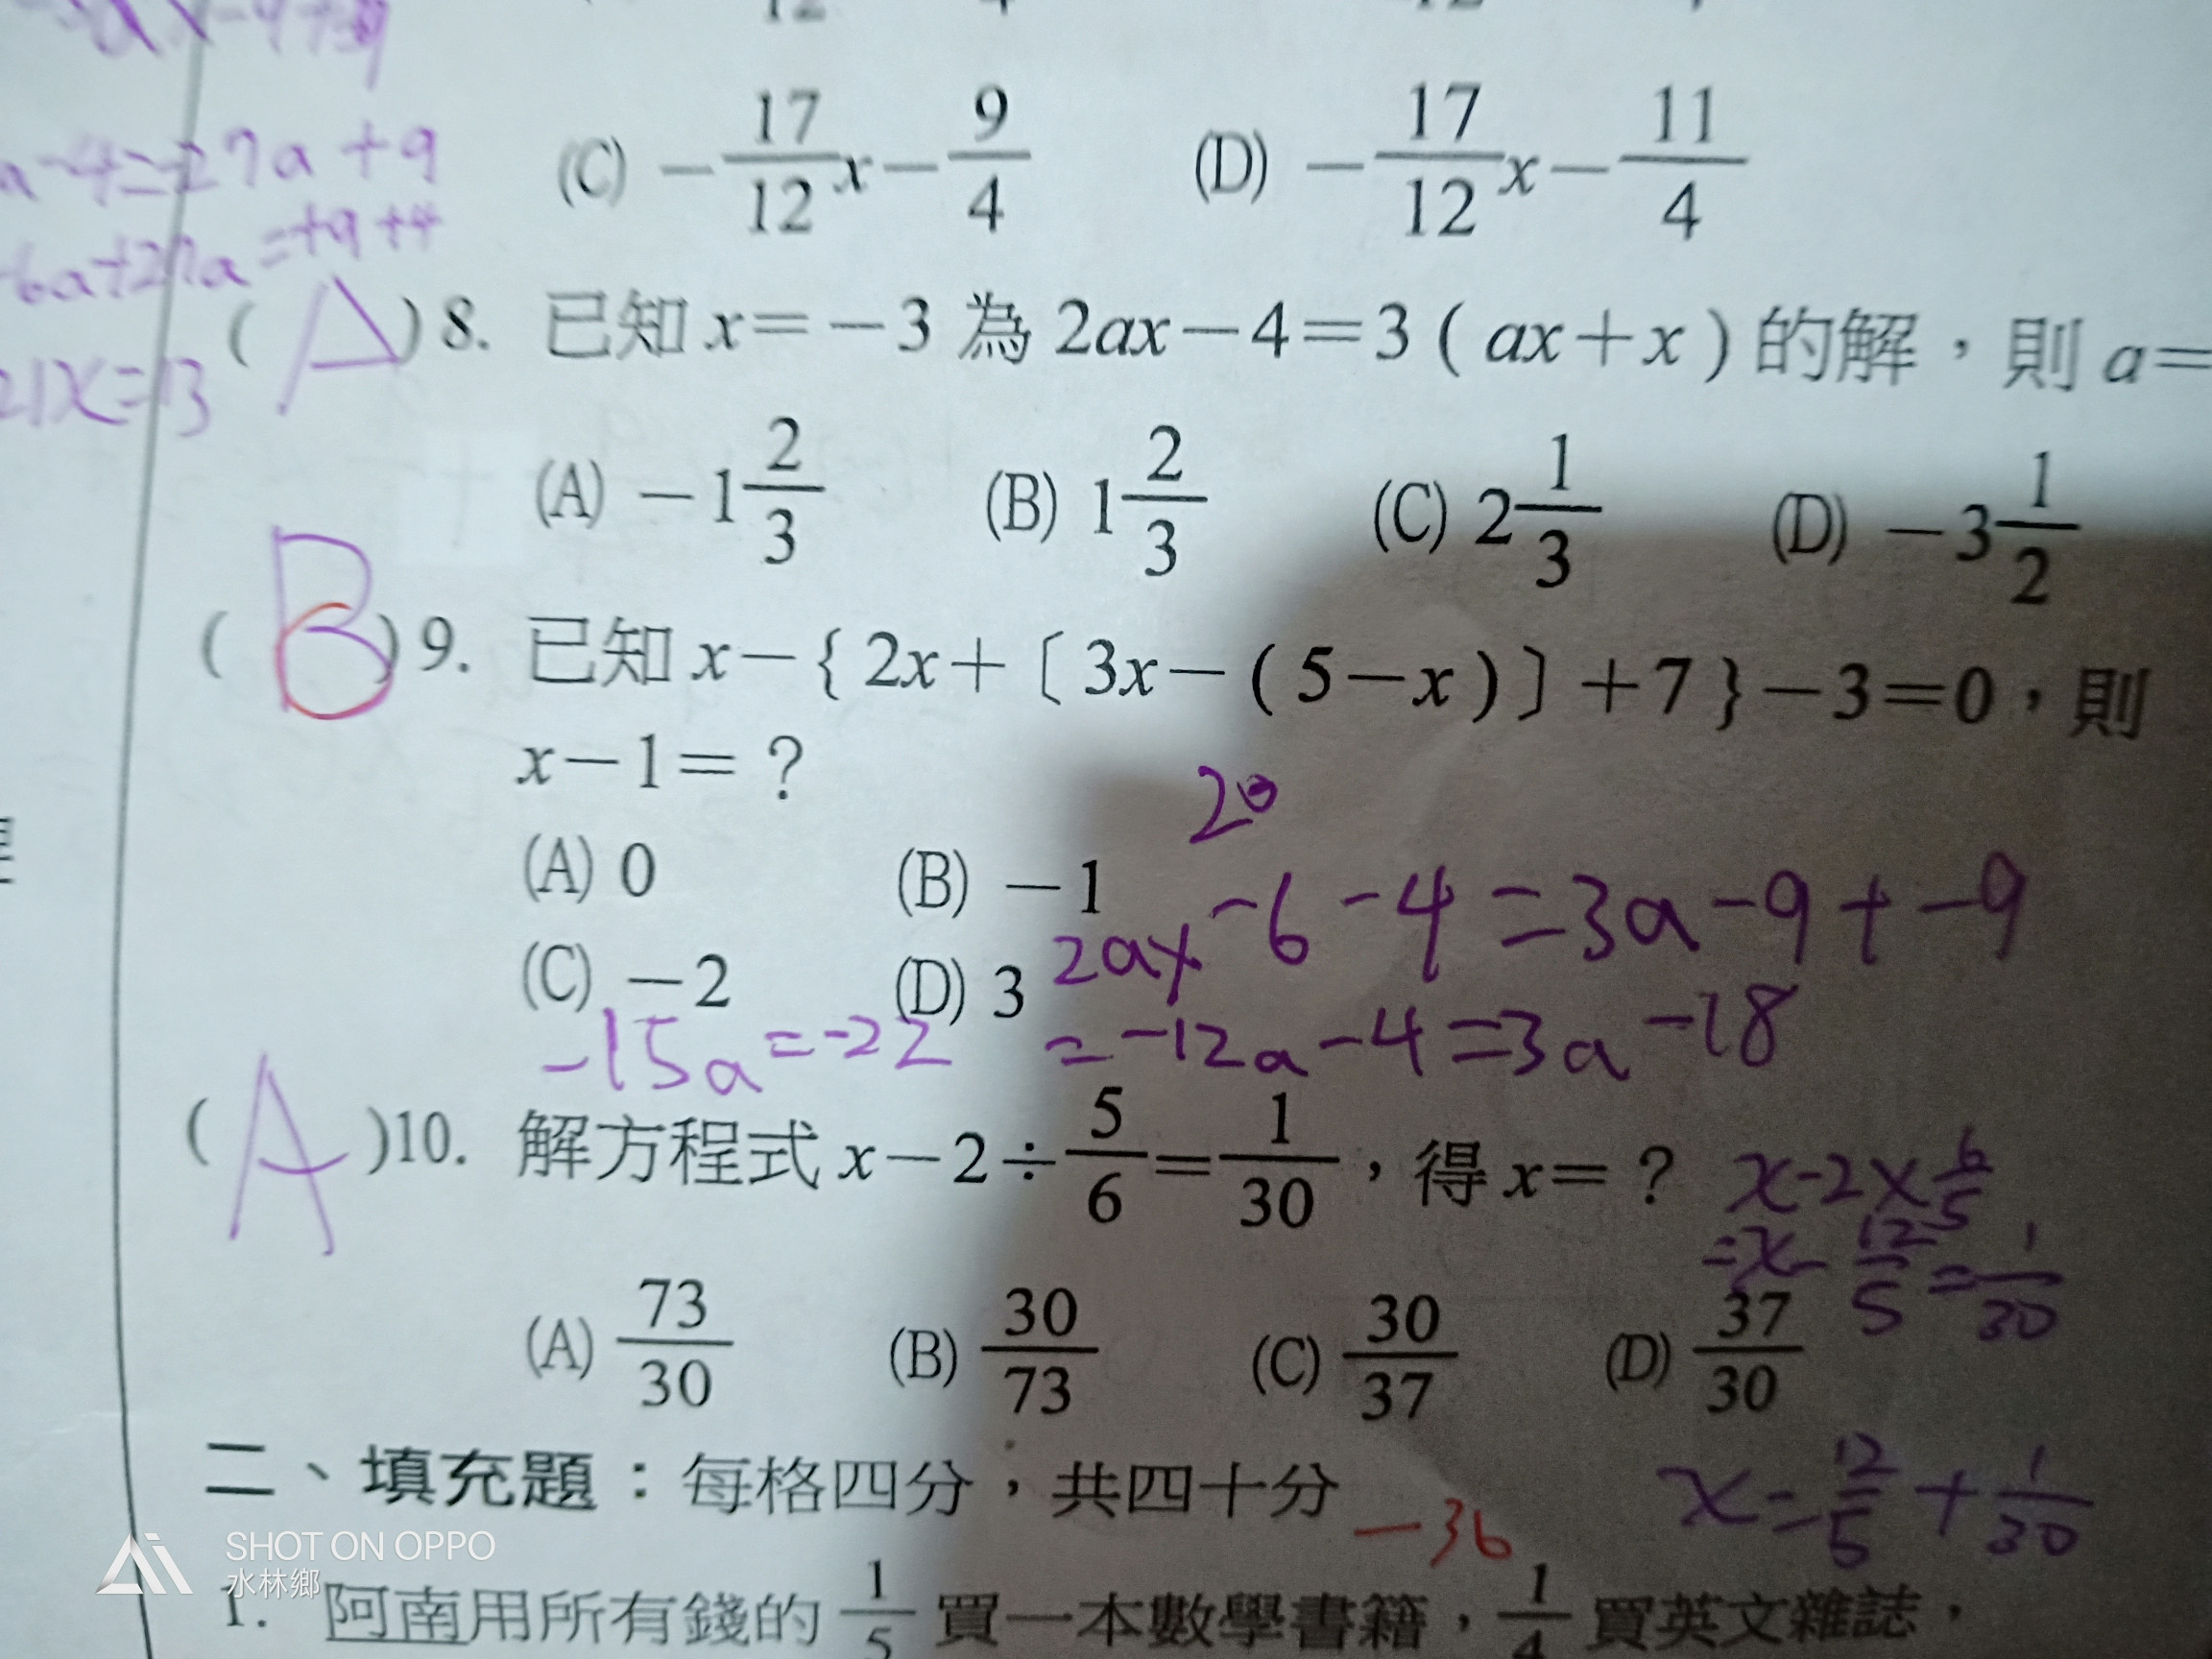 (C) −17/12x−9/4 (D) −17/12x−11/4
-4=-27a+9
-6a+27a=+9+4
21x=13
(A)8. 已知x=−3為2ax−4=3(ax+x)的解，則a=
(A) −1 2/3 (B) 1 2/3 (C) 2 1/3 (D) −3 1/2
(B)9. 已知x−{2x+〔3x−(5−x)〕+7}−3=0，則
x−1=？
(A) 0 (B) −1
2ax-6-4=3a-9+-9
(C) −2 (D) 3
-15a=-22 =-12a-4=3a-18
(A)10. 解方程式x−2÷5/6=1/30，得x=？
x-2×6/5
=x-12/5=1/30
(A) 73/30 (B) 30/73 (C) 30/37 (D) 37/30
x=12/5+1/30
二、填充題：每格四分，共四十分
-36
1. 阿南用所有錢的1/5買一本數學書籍，1/4買英文雜誌，
SHOT ON OPPO
水林鄉